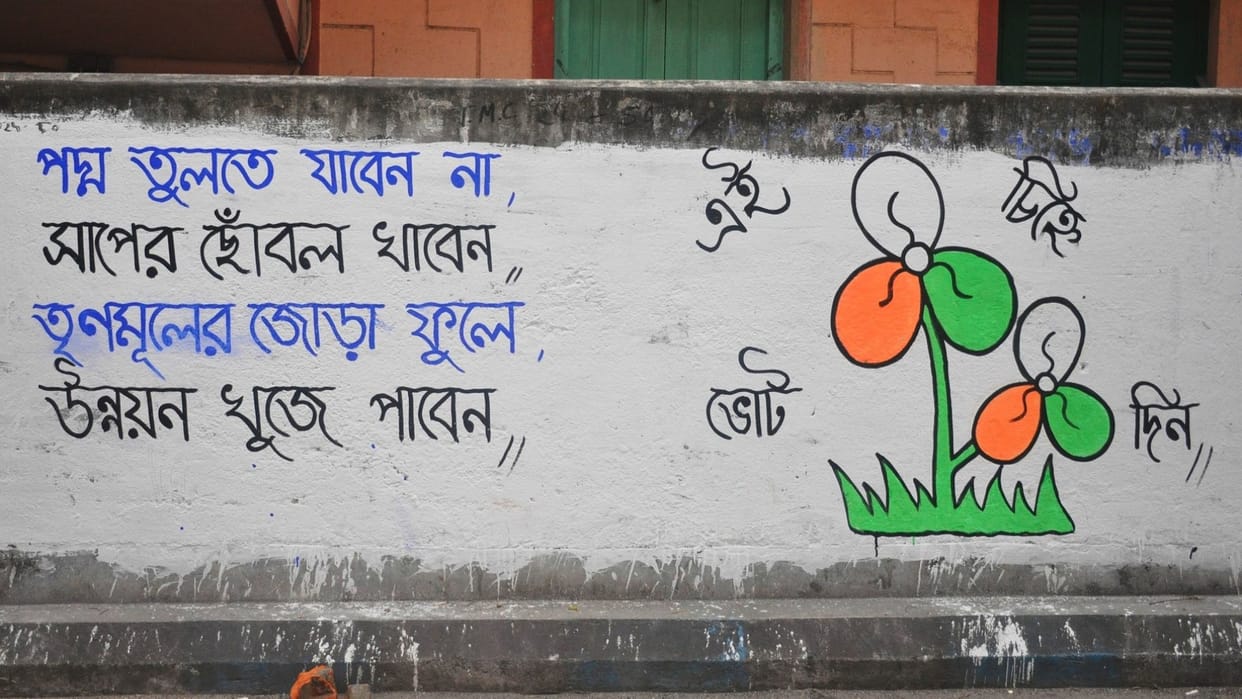 পদ্ম তুলতে যাবেন না,
সাপের ছোঁবল খাবেন॥
তৃণমূলের জোড়া ফুলে,
উন্নয়ন খুজে পাবেন॥
এই চিহ্নে
ভোট দিন॥